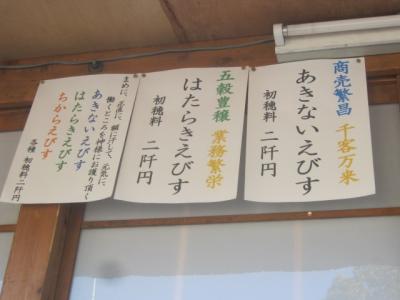 商売繁昌 千客万来
あきないえびす
初穂料 二阡円
五穀豊穣 業務繁栄
はたらきえびす
初穂料 二阡円
まめに、正直に、額に汗して、元気に、
働くところを神様にお護り頂く
あきないえびす
はたらきえびす
ちからえびす
各種 初穂料二阡円